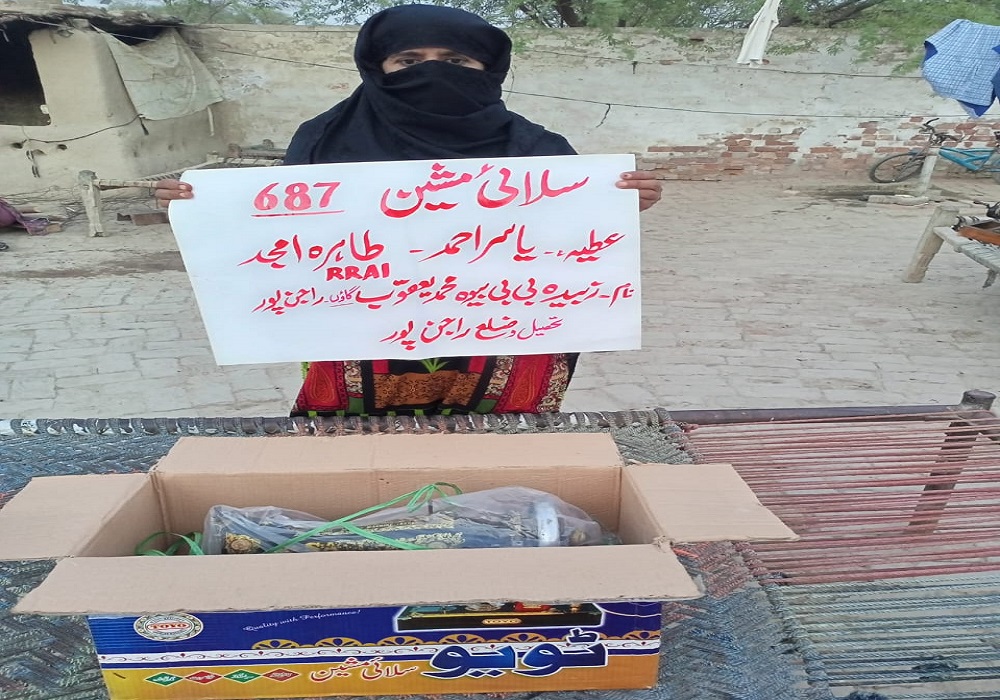 سلائی مشین 687
عطیہ۔ یاسر احمد۔ طاہرہ امجد
RRAI
نام۔ زبیدہ بی بی بیوہ محمد یعقوب گاؤں۔ راجن پور
تحصیل و ضلع راجن پور
TOYO
Quality with Performance!
TOYO
ٹویو
سلائی مشین